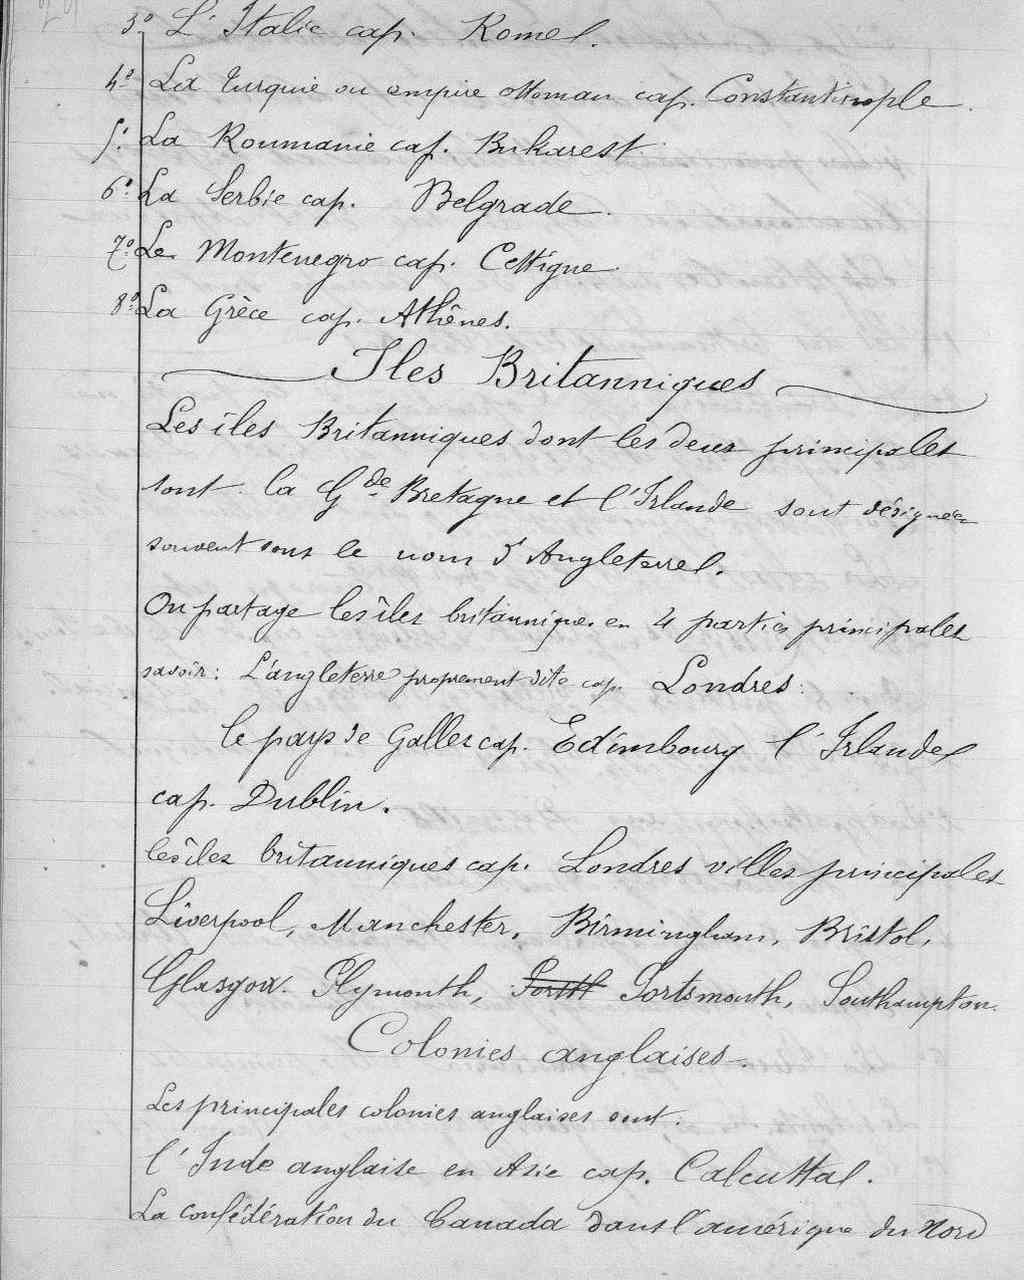 3º L'Italie cap. Rome.
4º La turquie ou empire ottoman cap. Constantinople.
5º La Roumanie cap. Bukarest
6º La Serbie cap. Belgrade.
7º Le Montenegro cap. Cettigne.
8º La Grèce cap. Athênes.
Iles Britanniques
Les îles Britanniques dont les deux principales
sont la Gde Bretagne et l'Irlande sont désignées
souvent sous le nom d'Angleterre.
On partage les îles britannique. en 4 parties principales
savoir: L'angleterre proprement dite cap. Londres.
le pays de Galles cap. Edimbourg l'Irlande
cap. Dublin.
les îles britanniques cap. Londres villes principales
Liverpool, Manchester, Birmingham, Bristol,
Glasgow. Plymouth, Portsmouth, Southampton.
Colonies anglaises.
Les principales colonies anglaises sont.
l'Inde anglaise en Asie cap. Calcutta.
La confédération du Canada dans l'amérique du Nord